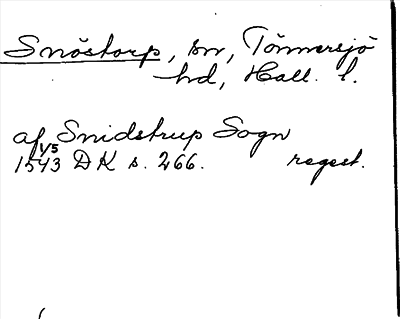 Snöstorp, sn, Tönnersjö
hd, Hall. l.
af Snidstrup Sogn
1/5
1543 DK s. 266. regest.